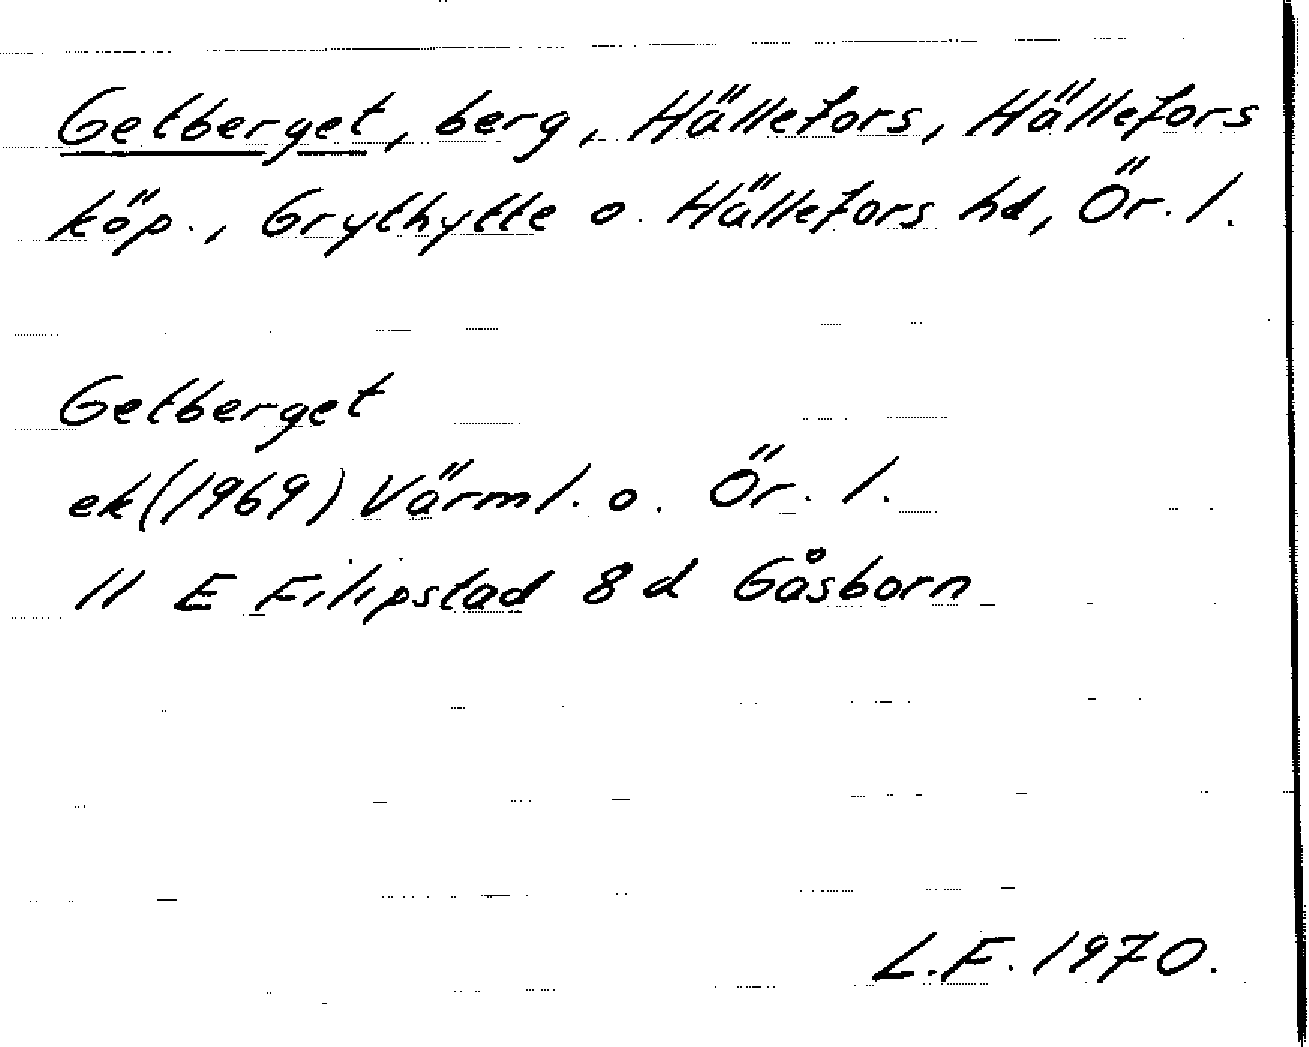 Getberget, berg, Hällefors, Hällefors
köp., Grythytte o. Hällefors hd, Ör. l.
Getberget
ek (1969) Värml. o. Ör. l.
11 E Filipstad 8 d Gåsborn
L.F. 1970.